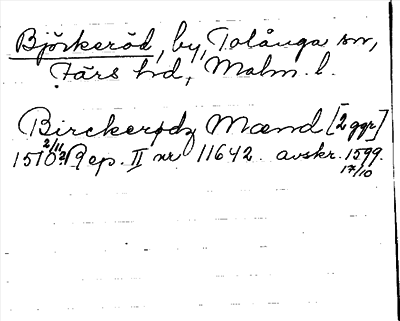 Björkeröd, by, Tolånga sn,
Färs hd, Malm. l.
Birckerødz Mænd [2 ggr]
1510 2/11 Rep. II nr 11642. avskr. 1599
17/10